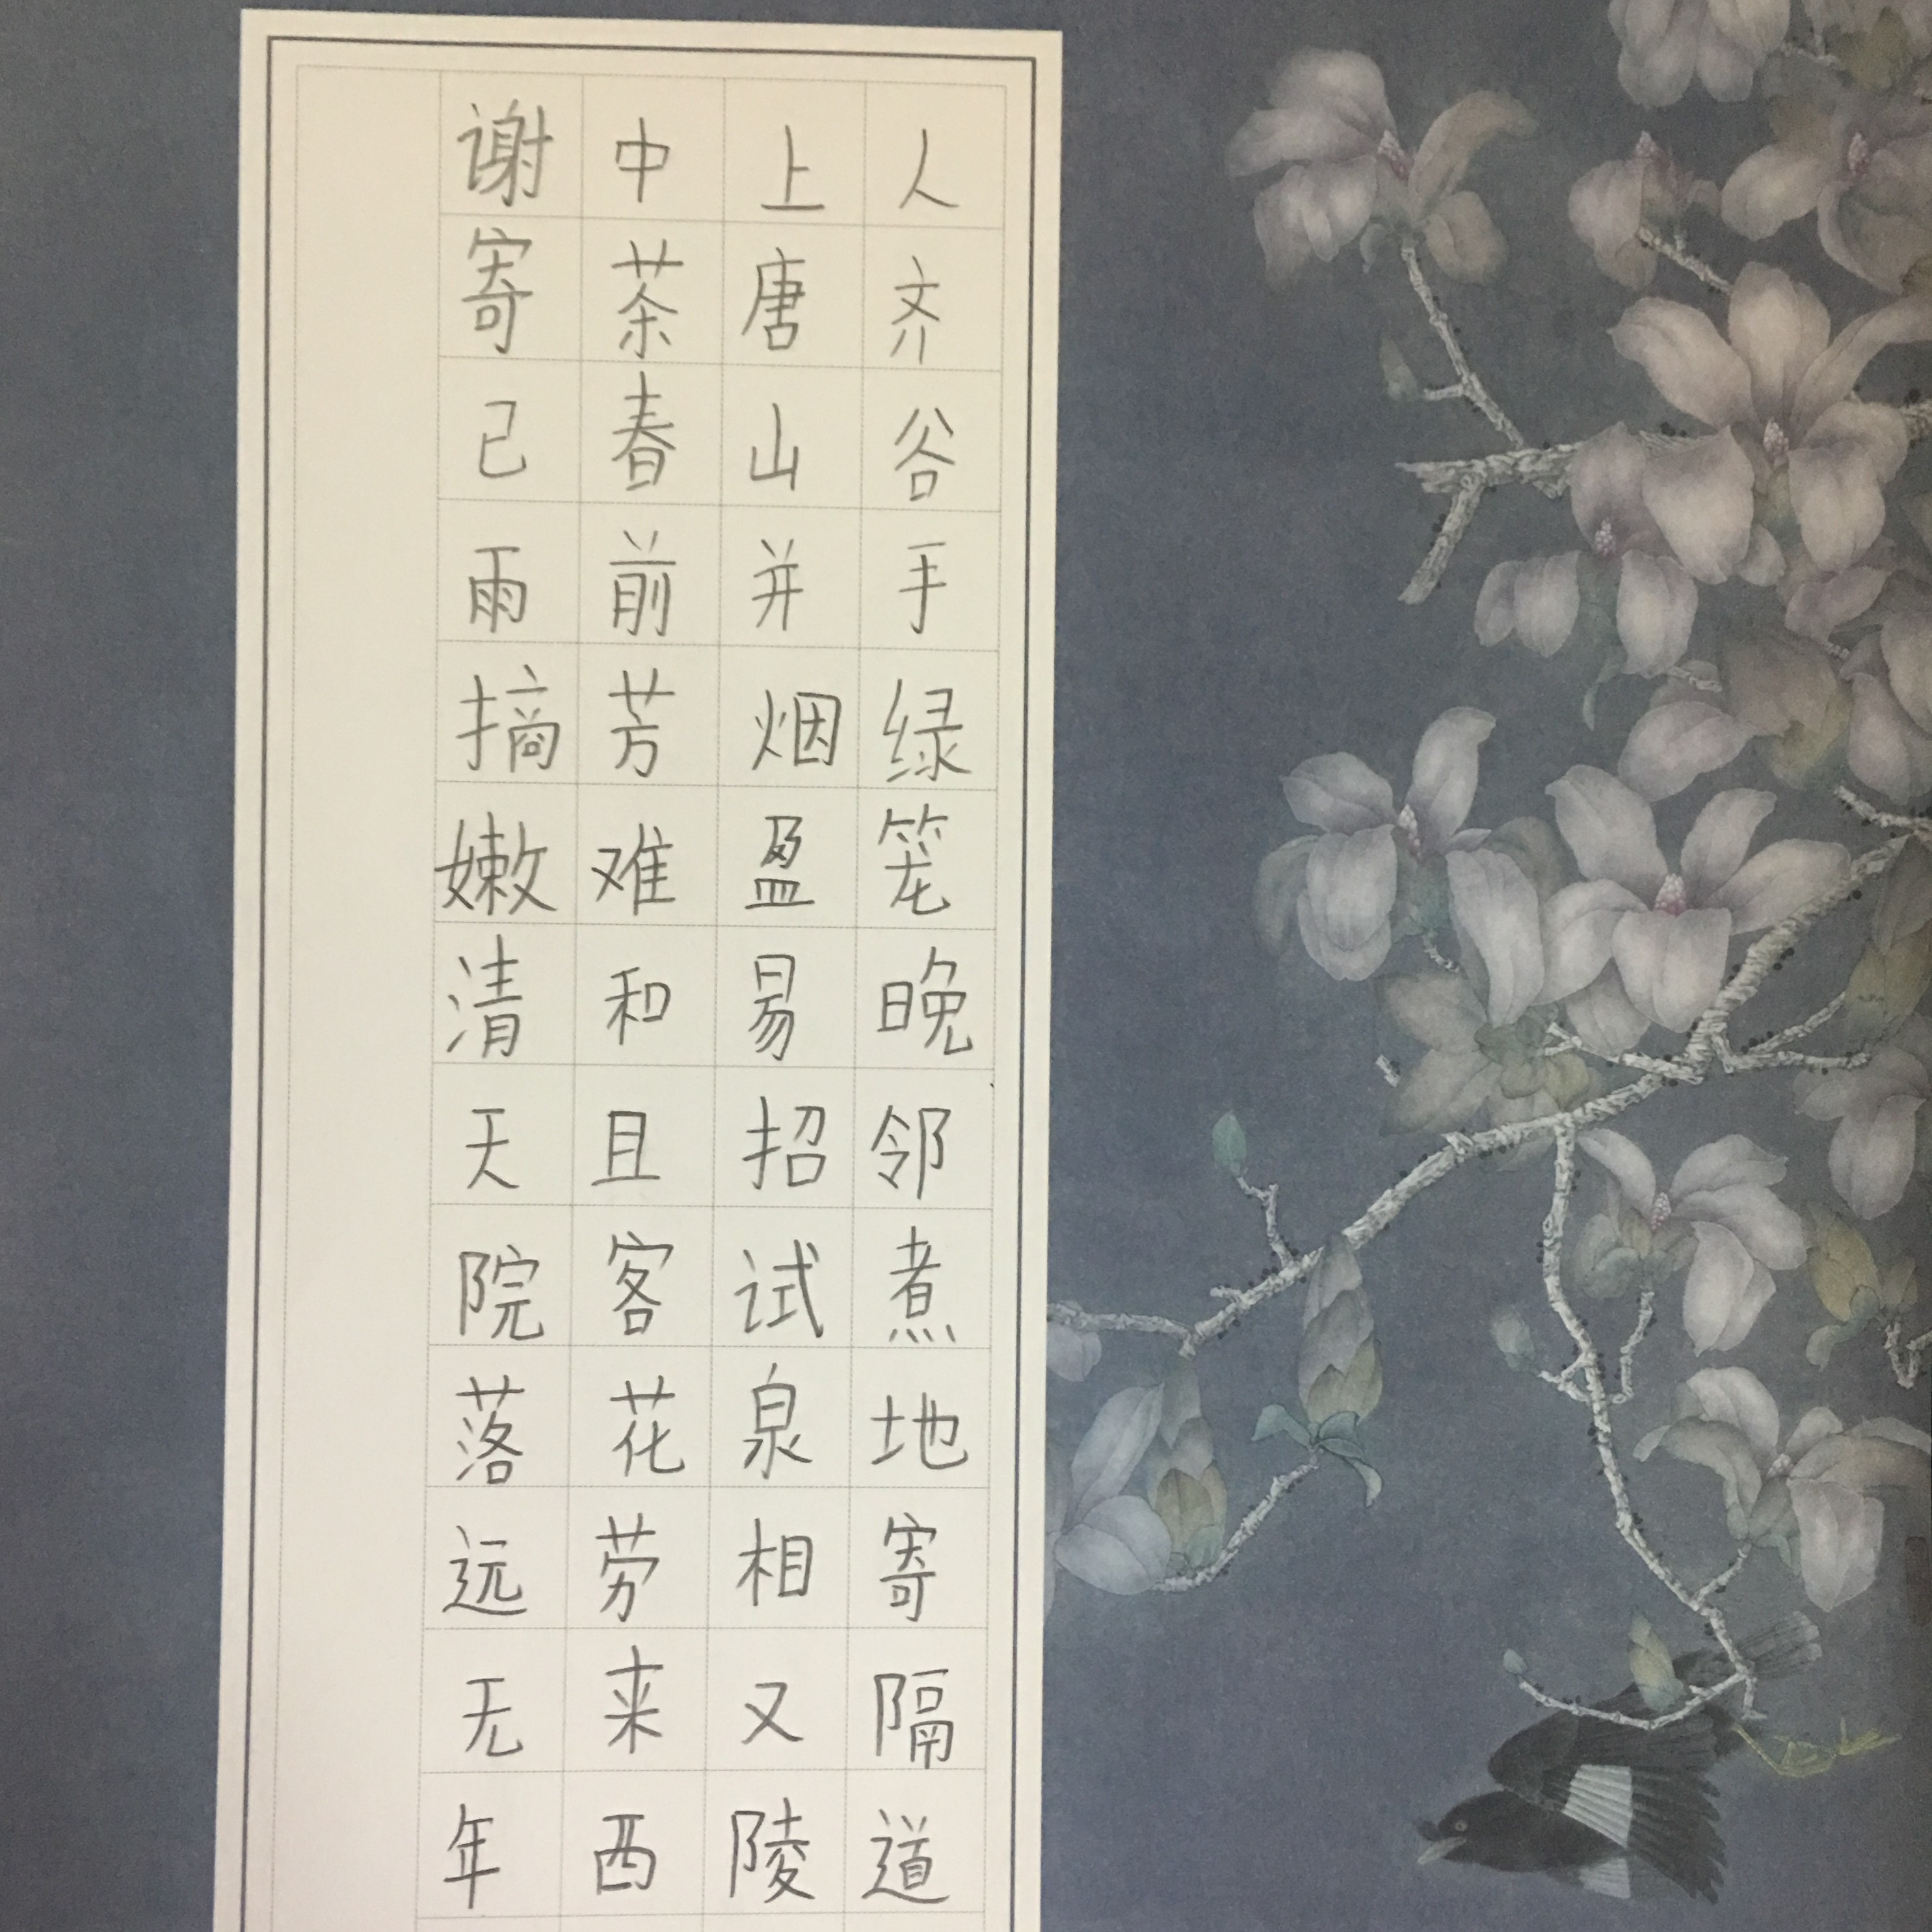 谢中上人
寄茶唐齐
己春山谷
雨前并手
摘芳烟绿
嫩难盈笼
清和易晚
天且招邻
院客试煮
落花泉地
远劳相寄
无来又隔
年西陵道